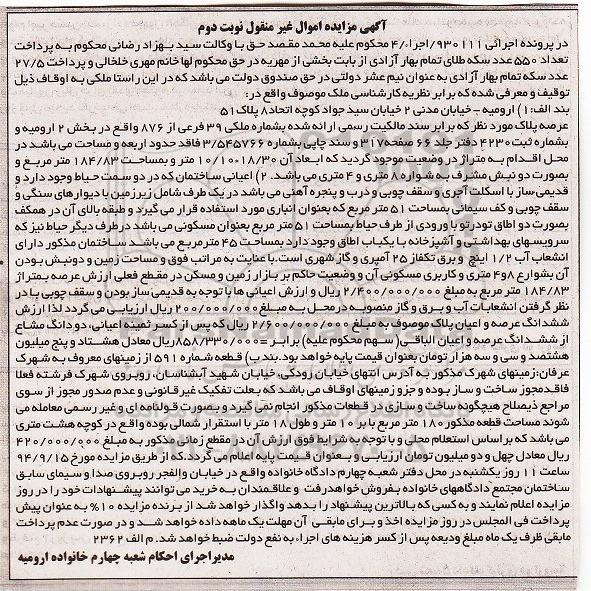 آگهی مزایده اموال غیر منقول نوبت دوم
در پرونده اجرائی ۹۳۰۱۱۱/اجراء/۴ محکوم علیه محمد مقصد حق با وکالت سید بهزاد رضائی محکوم به پرداخت
تعداد ۵۵۰ عدد سکه طلای تمام بهار آزادی از بابت بخشی از مهریه در حق محکوم لها خانم مهری خلخالی و پرداخت ۲۷/۵
عدد سکه تمام بهار آزادی به عنوان نیم عشر دولتی در حق صندوق دولت می باشد که در این راستا ملکی به اوقاف ذیل
توقیف و معرفی شده که برابر نظریه کارشناسی ملک موصوف واقع در:
بند الف:۱) ارومیه - خیابان مدنی ۲ خیابان سید جواد کوچه اتحاد ۸ پلاک ۵۱
عرصه پلاک مورد نظر که برابر سند مالکیت رسمی ارائه شده بشماره ملکی ۳۹ فرعی از ۸۷۶ واقع در بخش ۲ ارومیه و
بشماره ثبت ۴۲۳۰ دفتر جلد ۲۶ صفحه ۳۱۷ و سند چاپی بشماره ۳/۵۴۵۷۶۶ فاقد حدود اربعه و مساحت می باشد در
محل اقدام به متراژ در وضعیت موجود گردید که ابعاد آن ۱۸/۳۰*۱۰/۱۰ متر و بمساحت ۱۸۴/۸۳ متر مربع و
بصورت دو نبش مشرف به شوارع ۸ متری و ۴ متری می باشد. ۲) اعیانی ساختمان که در دو سمت حیاط وجود دارد و
قدیمی ساز با اسکلت آجری و سقف چوبی و درب و پنجره آهنی می باشد در یک طرف شامل زیرزمین با دیوارهای سنگی و
سقف چوبی و کف سیمانی بمساحت ۵۱ متر مربع که بعنوان انباری مورد استفاده قرار می گیرد و طبقه بالای آن در همکف
بصورت دو اطاق تودرتو با ورودی از طرف حیاط بمساحت ۵۱ متر مربع بعنوان مسکونی می باشد در طرف دیگر حیاط نیز که
سرویسهای بهداشتی و آشپزخانه با یکباب اطاق وجود دارد بمساحت ۴۵ مترمربع می باشد ساختمان مذکور دارای
انشعاب آب ۱/۲ اینچ و برق تکفاز ۲۵ آمپری و گاز شهری است. با عنایت به مراتب فوق و مساحت زمین و دونبش بودن
آن بشوارع ۸و۴ متری و کاربری مسکونی آن و وضعیت حاکم بر بازار زمین و مسکن در مقطع فعلی ارزش عرصه بمتراژ
۱۸۴/۸۳ متر مربع به مبلغ ۲/۴۰۰/۰۰۰/۰۰۰ ریال و ارزش اعیانی ها با توجه به قدیمی ساز بودن و سقف چوبی با در
نظر گرفتن انشعابات آب و برق و گاز منصوبه در محل به مبلغ ۲۰۰/۰۰۰/۰۰۰ ریال ارزیابی می گردد لذا ارزش
ششدانگ عرصه و اعیان پلاک موصوف به مبلغ ۲/۶۰۰/۰۰۰/۰۰۰ ریال که پس از کسر ثمنیه اعیانی، دو دانگ مشاع
از ششدانگ عرصه و اعیان الباقی (سهم محکوم علیه) برابر =۸۵۸/۳۳۰/۰۰۰ ریال معادل هشتاد و پنج میلیون
هشتصد و سی و سه هزار تومان بعنوان قیمت پایه خواهد بود. بند ب) قطعه شماره ۵۹۱ از زمینهای معروف به شهرک
عرفان: زمینهای شهرک مذکور به آدرس انتهای خیابان رودکی، خیابان شهید آبشناسان، روبروی شهرک فرشته فعلا
فاقد مجوز ساخت و ساز بوده و جزو زمینهای اوقاف می باشد که بعلت تفکیک غیرقانونی و عدم صدور مجوز از سوی
مراجع ذیصلاح هیچگونه ساخت و سازی در قطعات مذکور انجام نمی گیرد و بصورت قولنامه ای و غیر رسمی معامله می
شوند مساحت قطعه مذکور ۱۸۰ متر مربع با بر ۱۰ متر و طول ۱۸ متر با استقرار شمالی بوده واقع در کوچه هشت متری
می باشد که بر اساس استعلام محلی و با توجه به شرایط فوق ارزش آن در مقطع زمانی مذکور به مبلغ ۴۲۰/۰۰۰/۰۰۰
ریال معادل چهل و دو میلیون تومان ارزیابی و بعنوان قیمت پایه اعلام می گردد که از طریق مزایده مورخ ۹۴/۹/۱۵
ساعت ۱۱ روز یکشنبه در محل دفتر شعبه چهارم دادگاه خانواده واقع در خیابان والفجر روبروی صدا و سیمای سابق
ساختمان مجتمع دادگاههای خانواده بفروش خواهد رفت و علاقمندان به خرید می توانند پیشنهادات خود را در روز
مزایده اعلام نمایند و به کسی که بالاترین پیشنهاد را بدهد واگذار خواهد شد از برنده مزایده ۱۰% به عنوان پیش
پرداخت فی المجلس در روز مزایده اخذ و برای مابقی آن مهلت یک ماهه داده خواهد شد و در صورت عدم پرداخت
مابقی ظرف یک ماه مبلغ ودیعه پس از کسر هزینه های اجراء به نفع دولت ضبط خواهد شد. م الف ۲۳۶۲
مدیر اجرای احکام شعبه چهارم خانواده ارومیه